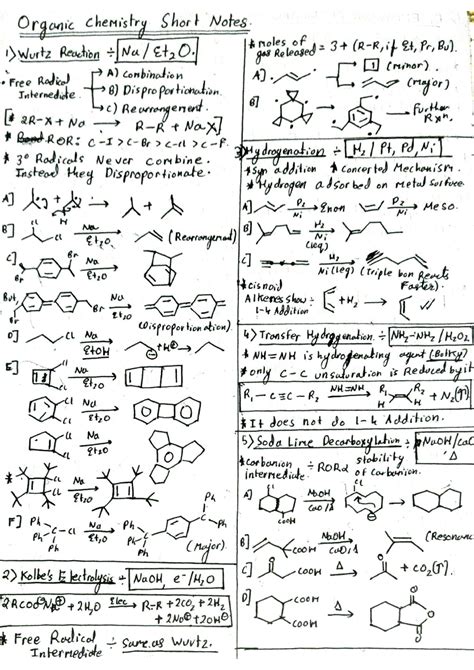 Organic Chemistry Short Notes.
1) Wurtz Reaction ÷ Na / Et₂O.
* Free Radical Intermediate
A) Combination
B) Disproportionation
C) Rearrangement.
[* 2R-X + Na → R-R + NaX]
* ROR: C-I > C-Br > C-Cl > C-F
* 3° Radicals Never combine.
Instead they Disproportionate.
A]
B] Cl Na Et₂O (Rearrangement)
C] Br Br Na Et₂O
But, Br Br Na Et₂O
(Disproportionation)
D] Cl Na EtOH
E] Cl Cl Na Et₂O
Cl Cl Na Et₂O
Cl Na Et₂O
* Cl Cl Na Et₂O
F] Ph Ph C-Cl Ph Na Et₂O Ph Ph Ph Ph
(Major)
2) Kolbe's Electrolysis ÷ NaOH, e⁻/H₂O
2RCOO⁻Na⁺ + 2H₂O Elec → R-R + 2CO₂ + 2H₂
+ 2Na⁺ + 2OH⁻
* Free Radical Intermediate ÷ same as Wurtz.
* moles of gas Released = 3 + (R-R, if Et, Pr, Bu).
A] (minor)
(Major)
B] Further Rxn.
3) Hydrogenation ÷ H₂ / Pt, Pd, Ni
* Syn addition * Concerted Mechanism.
* Hydrogen adsorbed on Metal Surface
A] D₂ Ni D₂ Ni Meso.
B] H₂ Ni (1eq)
C] H₂ Ni (1eq) (Triple bon Reacts Faster)
* cisoid
Alkenes show ÷ 1-4 Addition + H₂
4) Transfer Hydrogenation ÷ NH₂-NH₂ / H₂O₂
* NH=NH is hydrogenating agent
* only C-C unsaturation is Reduced by it
R₁-C≡C-R₂ NH=NH → R₁ C=C R₂ H H + N₂(↑)
* It does not do 1-4 Addition.
5) Soda Lime Decarboxylation ÷ NaOH/CaO Δ
* Carbanion intermediate ÷ ROR α stability of Carbanion.
A] COOH NaOH CaO/Δ
B] COOH NaOH CaO/Δ
C] COOH Δ + CO₂(↑)
D] COOH COOH Δ